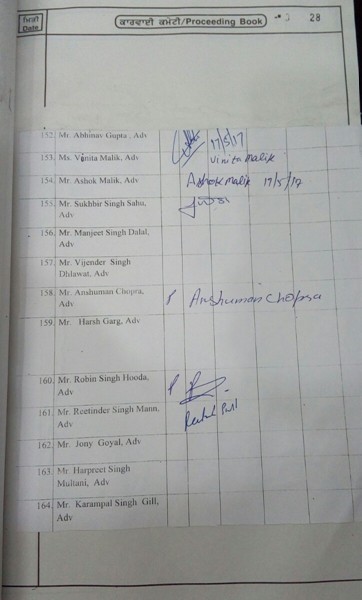 ਮਿਤੀ
Date
ਕਾਰਵਾਈ ਕਮੇਟੀ/Proceeding Book
28
152. Mr. Abhinav Gupta, Adv
17/5/17
153. Ms. Vinita Malik, Adv
Vinita Malik
154. Mr. Ashok Malik, Adv
Ashok Malik 17/5/17
155. Mr. Sukhbir Singh Sahu,
Adv
156. Mr. Manjeet Singh Dalal,
Adv
157. Mr. Vijender Singh
Dhlawat, Adv
158. Mr. Anshuman Chopra,
Adv
Anshuman Chopra
159. Mr. Harsh Garg, Adv
160. Mr. Robin Singh Hooda,
Adv
161. Mr. Reetinder Singh Mann,
Adv
162. Mr. Jony Goyal, Adv
163. Mr Harpreet Singh
Multani, Adv
164. Mr. Karampal Singh Gill,
Adv